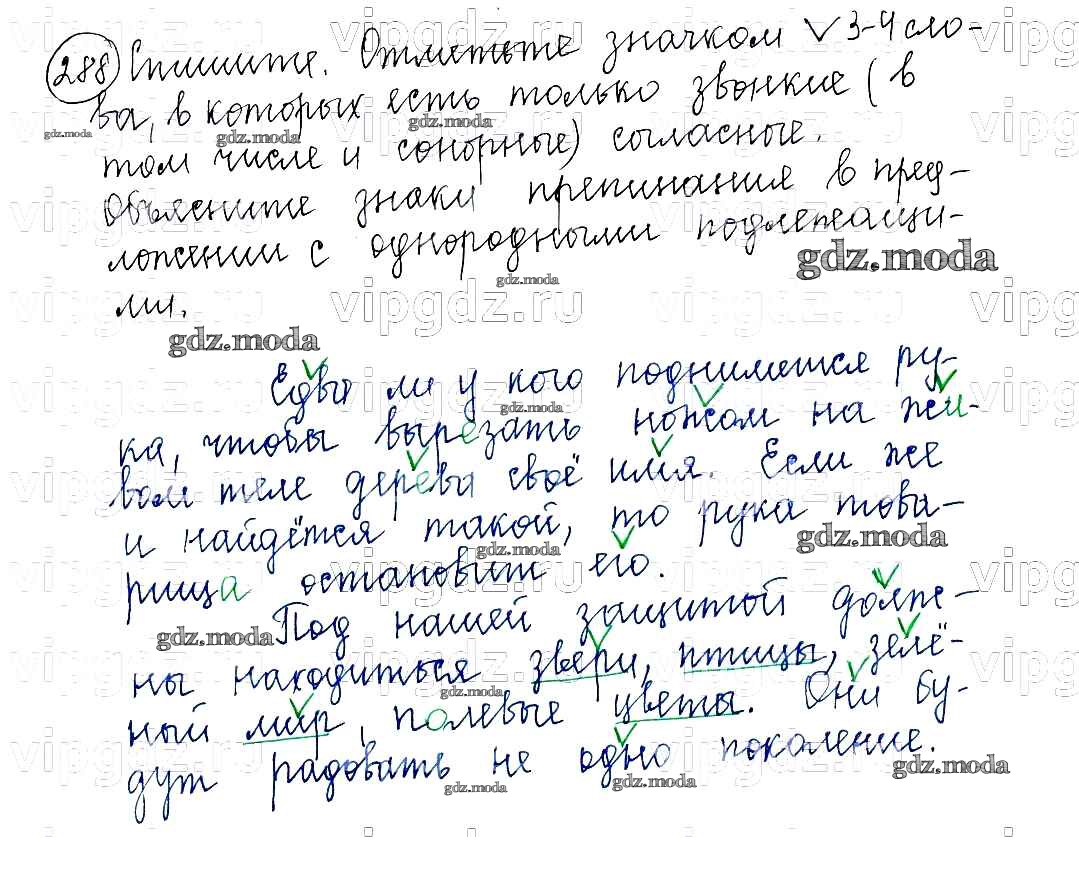 288 Спишите. Отметьте значком ✓ 3-4 сло-
ва, в которых есть только звонкие (в
том числе и сонорные) согласные.
Объясните знаки препинания в пред-
ложении с однородными подлежащи-
ми.
Едва ли у кого поднимется ру-
ка, чтобы вырезать ножом на жи-
вом теле дерева своё имя. Если же
и найдётся такой, то рука това-
рища остановит его.
Под нашей защитой долж-
ны находиться звери, птицы, зелё-
ный мир, полевые цветы. Они бу-
дут радовать не одно поколение.
vipgdz.ru
gdz.moda